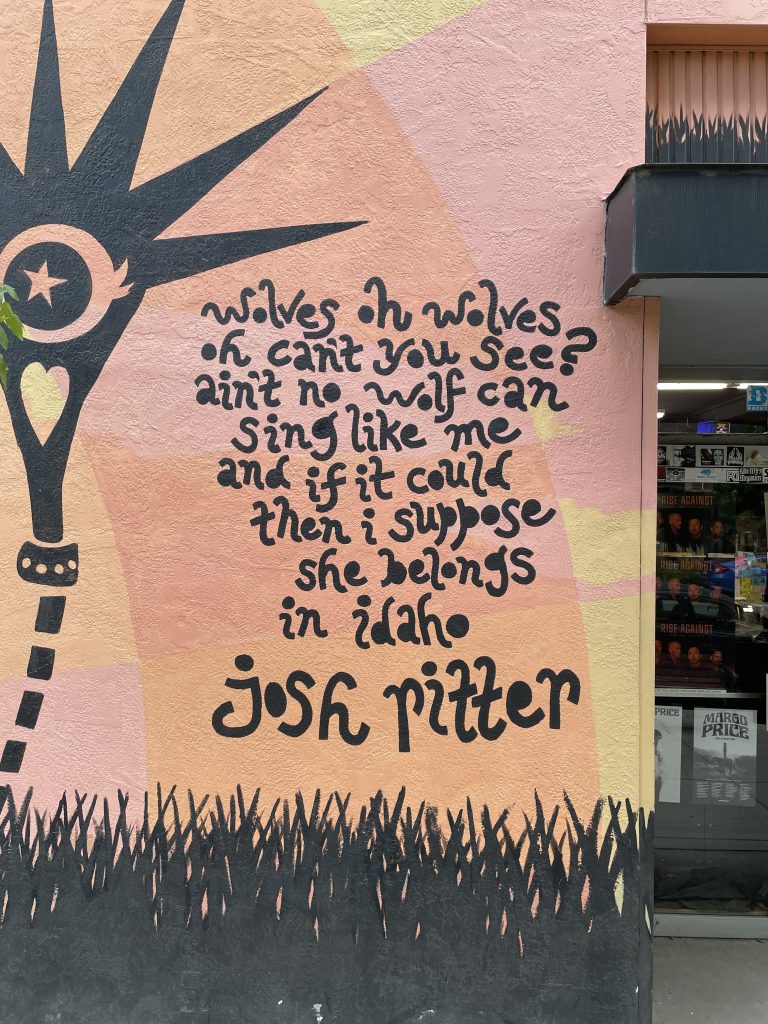 wolves oh wolves
oh can't you see?
ain't no wolf can
sing like me
and if it could
then i suppose
she belongs
in idaho
josh ritter
RISE AGAINST
RISE AGAINST
RISE AGAINST
PRICE
MARGO
PRICE